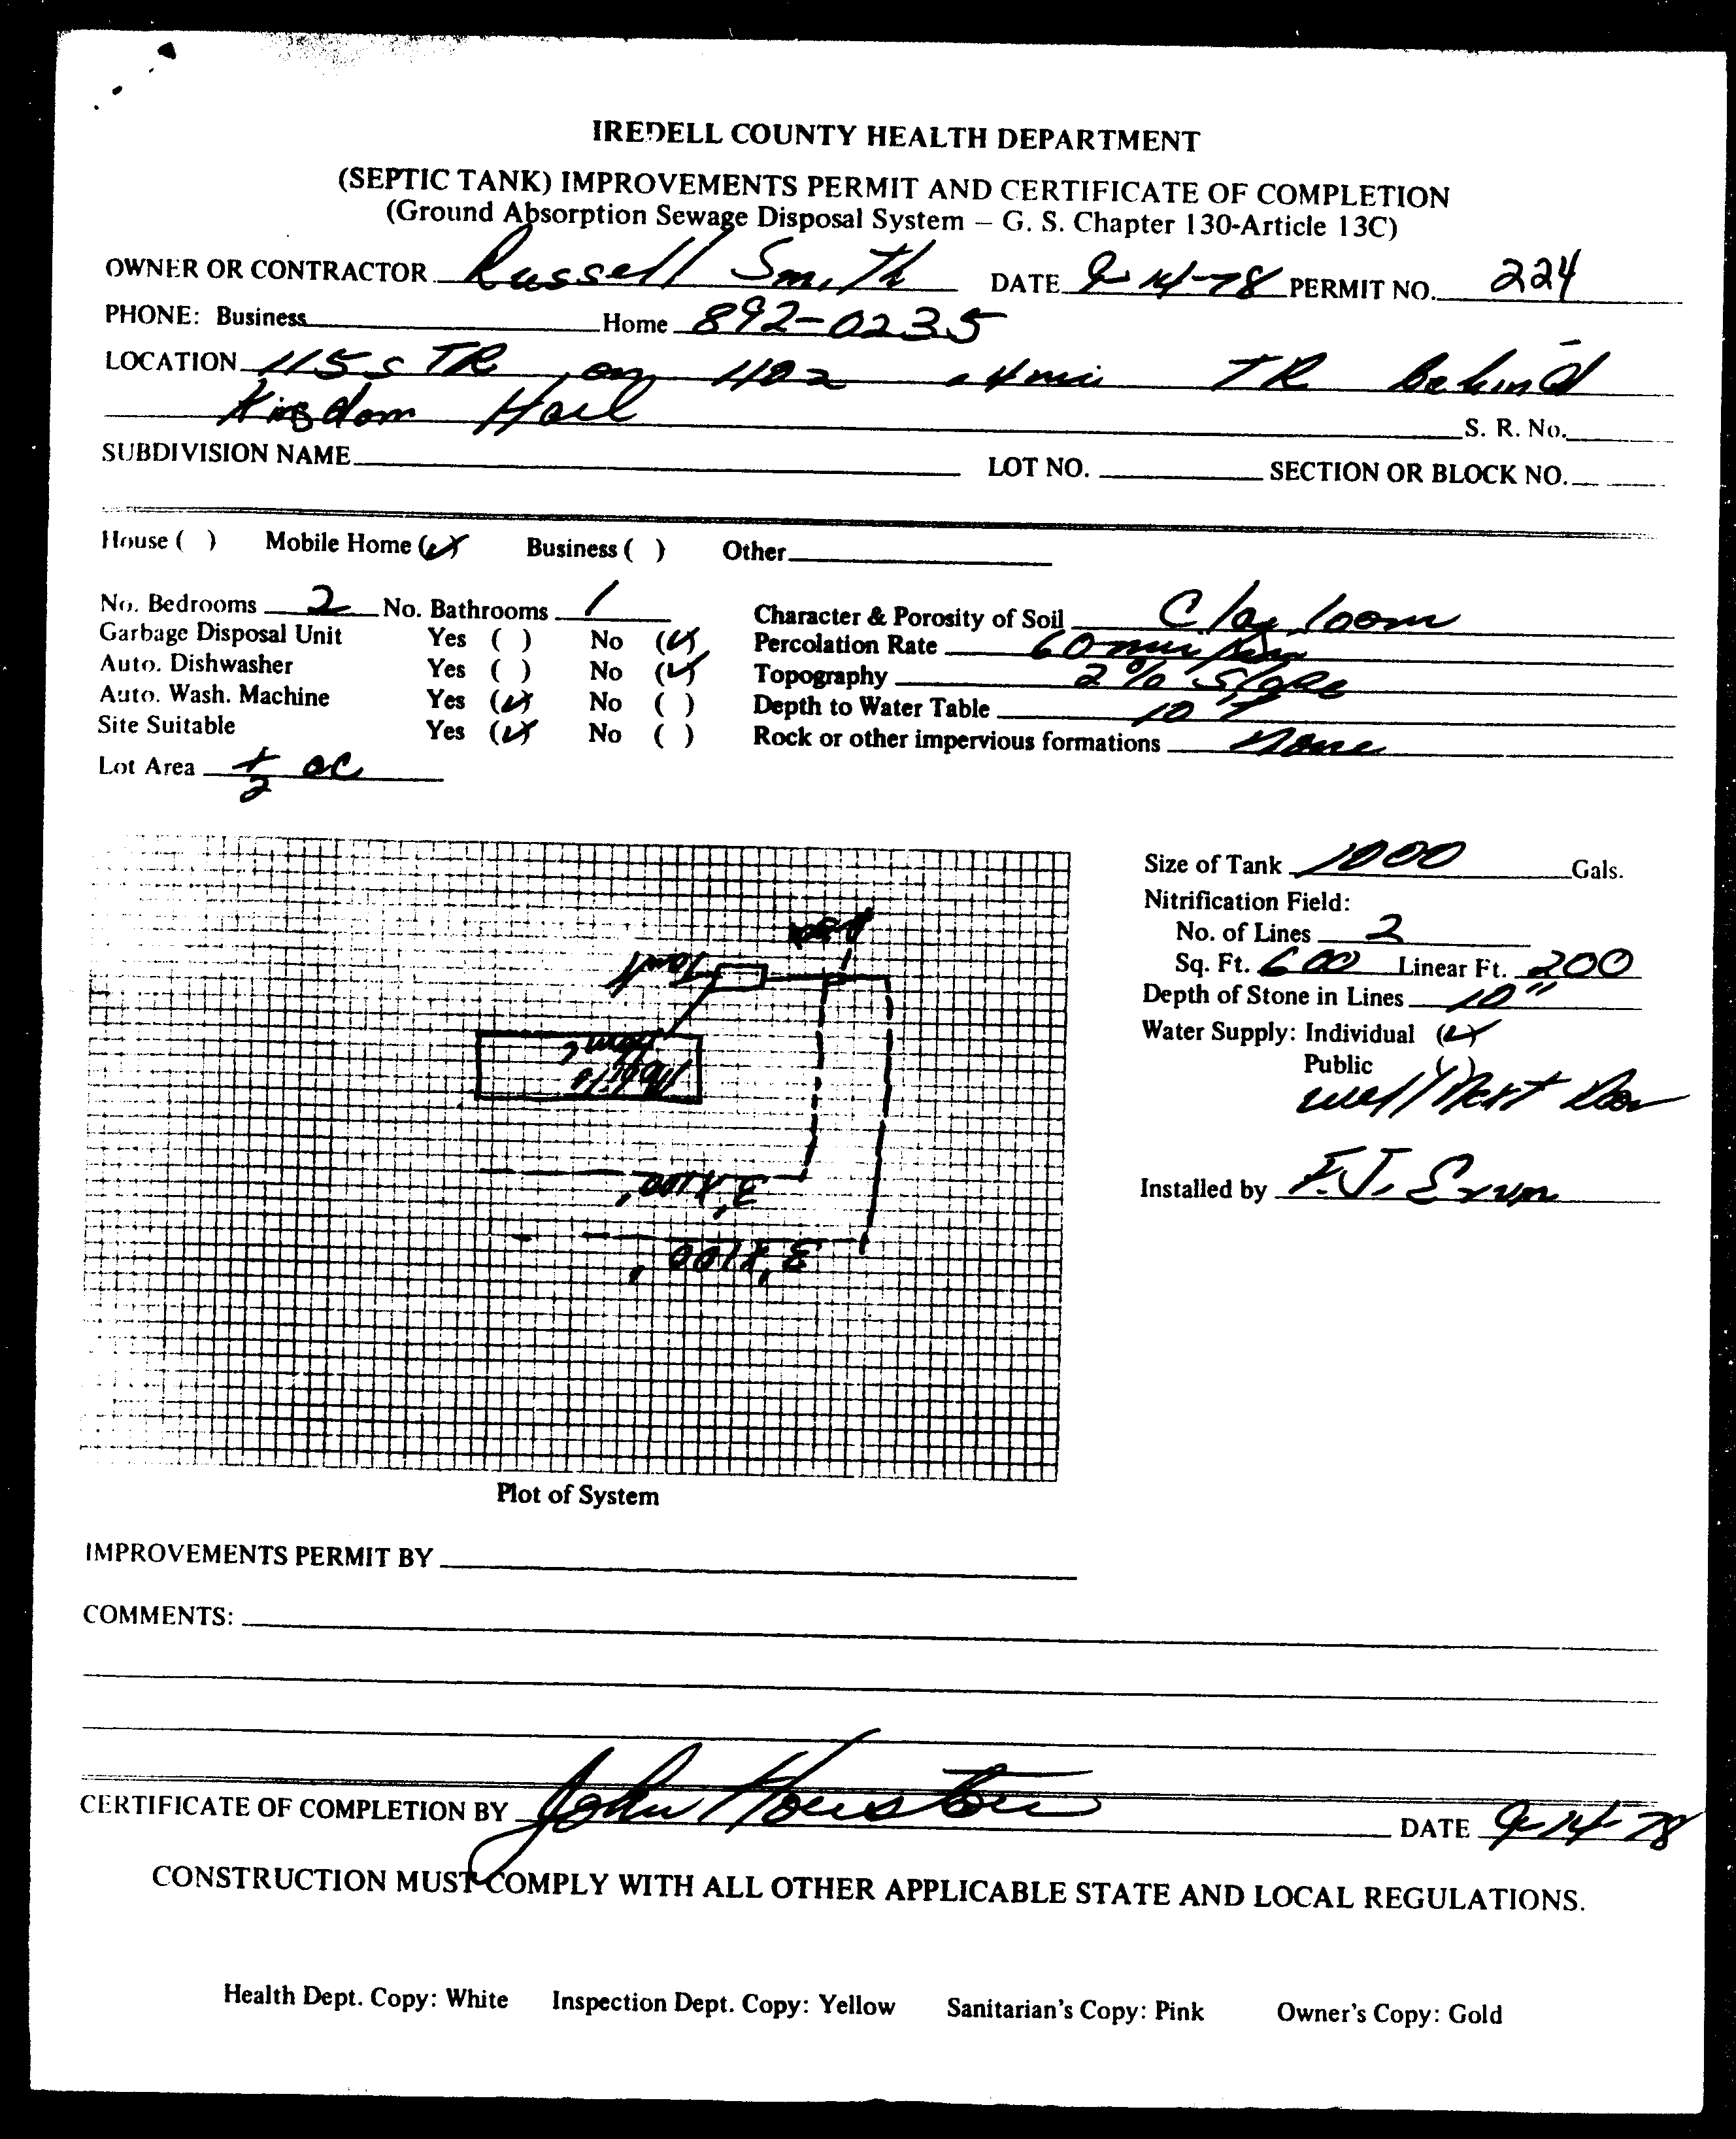 IREDELL COUNTY HEALTH DEPARTMENT
(SEPTIC TANK) IMPROVEMENTS PERMIT AND CERTIFICATE OF COMPLETION
(Ground Absorption Sewage Disposal System – G. S. Chapter 130-Article 13C)
OWNER OR CONTRACTOR Russell Smith DATE 9-14-78 PERMIT NO. 224
PHONE: Business Home 892-0235
LOCATION 115 S TR on 1102 .4 mi TR Behind
Kingdom Hall S. R. No.
SUBDIVISION NAME LOT NO. SECTION OR BLOCK NO.
House ( ) Mobile Home (✓) Business ( ) Other
No. Bedrooms 2 No. Bathrooms 1 Character & Porosity of Soil Clay loam
Garbage Disposal Unit Yes ( ) No (✓) Percolation Rate 60 min/
Auto. Dishwasher Yes ( ) No (✓) Topography 2% slope
Auto. Wash. Machine Yes (✓) No ( ) Depth to Water Table 10'+
Site Suitable Yes (✓) No ( ) Rock or other impervious formations None
Lot Area ½ ac
Size of Tank 1000 Gals.
Nitrification Field:
No. of Lines 2
Sq. Ft. 600 Linear Ft. 200
Depth of Stone in Lines 10"
Water Supply: Individual (✓)
Public ( )
well Next Door
Installed by F.J.
Tank
Mobile
Home
3'x100'
3'x100'
Plot of System
IMPROVEMENTS PERMIT BY
COMMENTS:
CERTIFICATE OF COMPLETION BY John Houston DATE 9-14-78
CONSTRUCTION MUST COMPLY WITH ALL OTHER APPLICABLE STATE AND LOCAL REGULATIONS.
Health Dept. Copy: White Inspection Dept. Copy: Yellow Sanitarian's Copy: Pink Owner's Copy: Gold